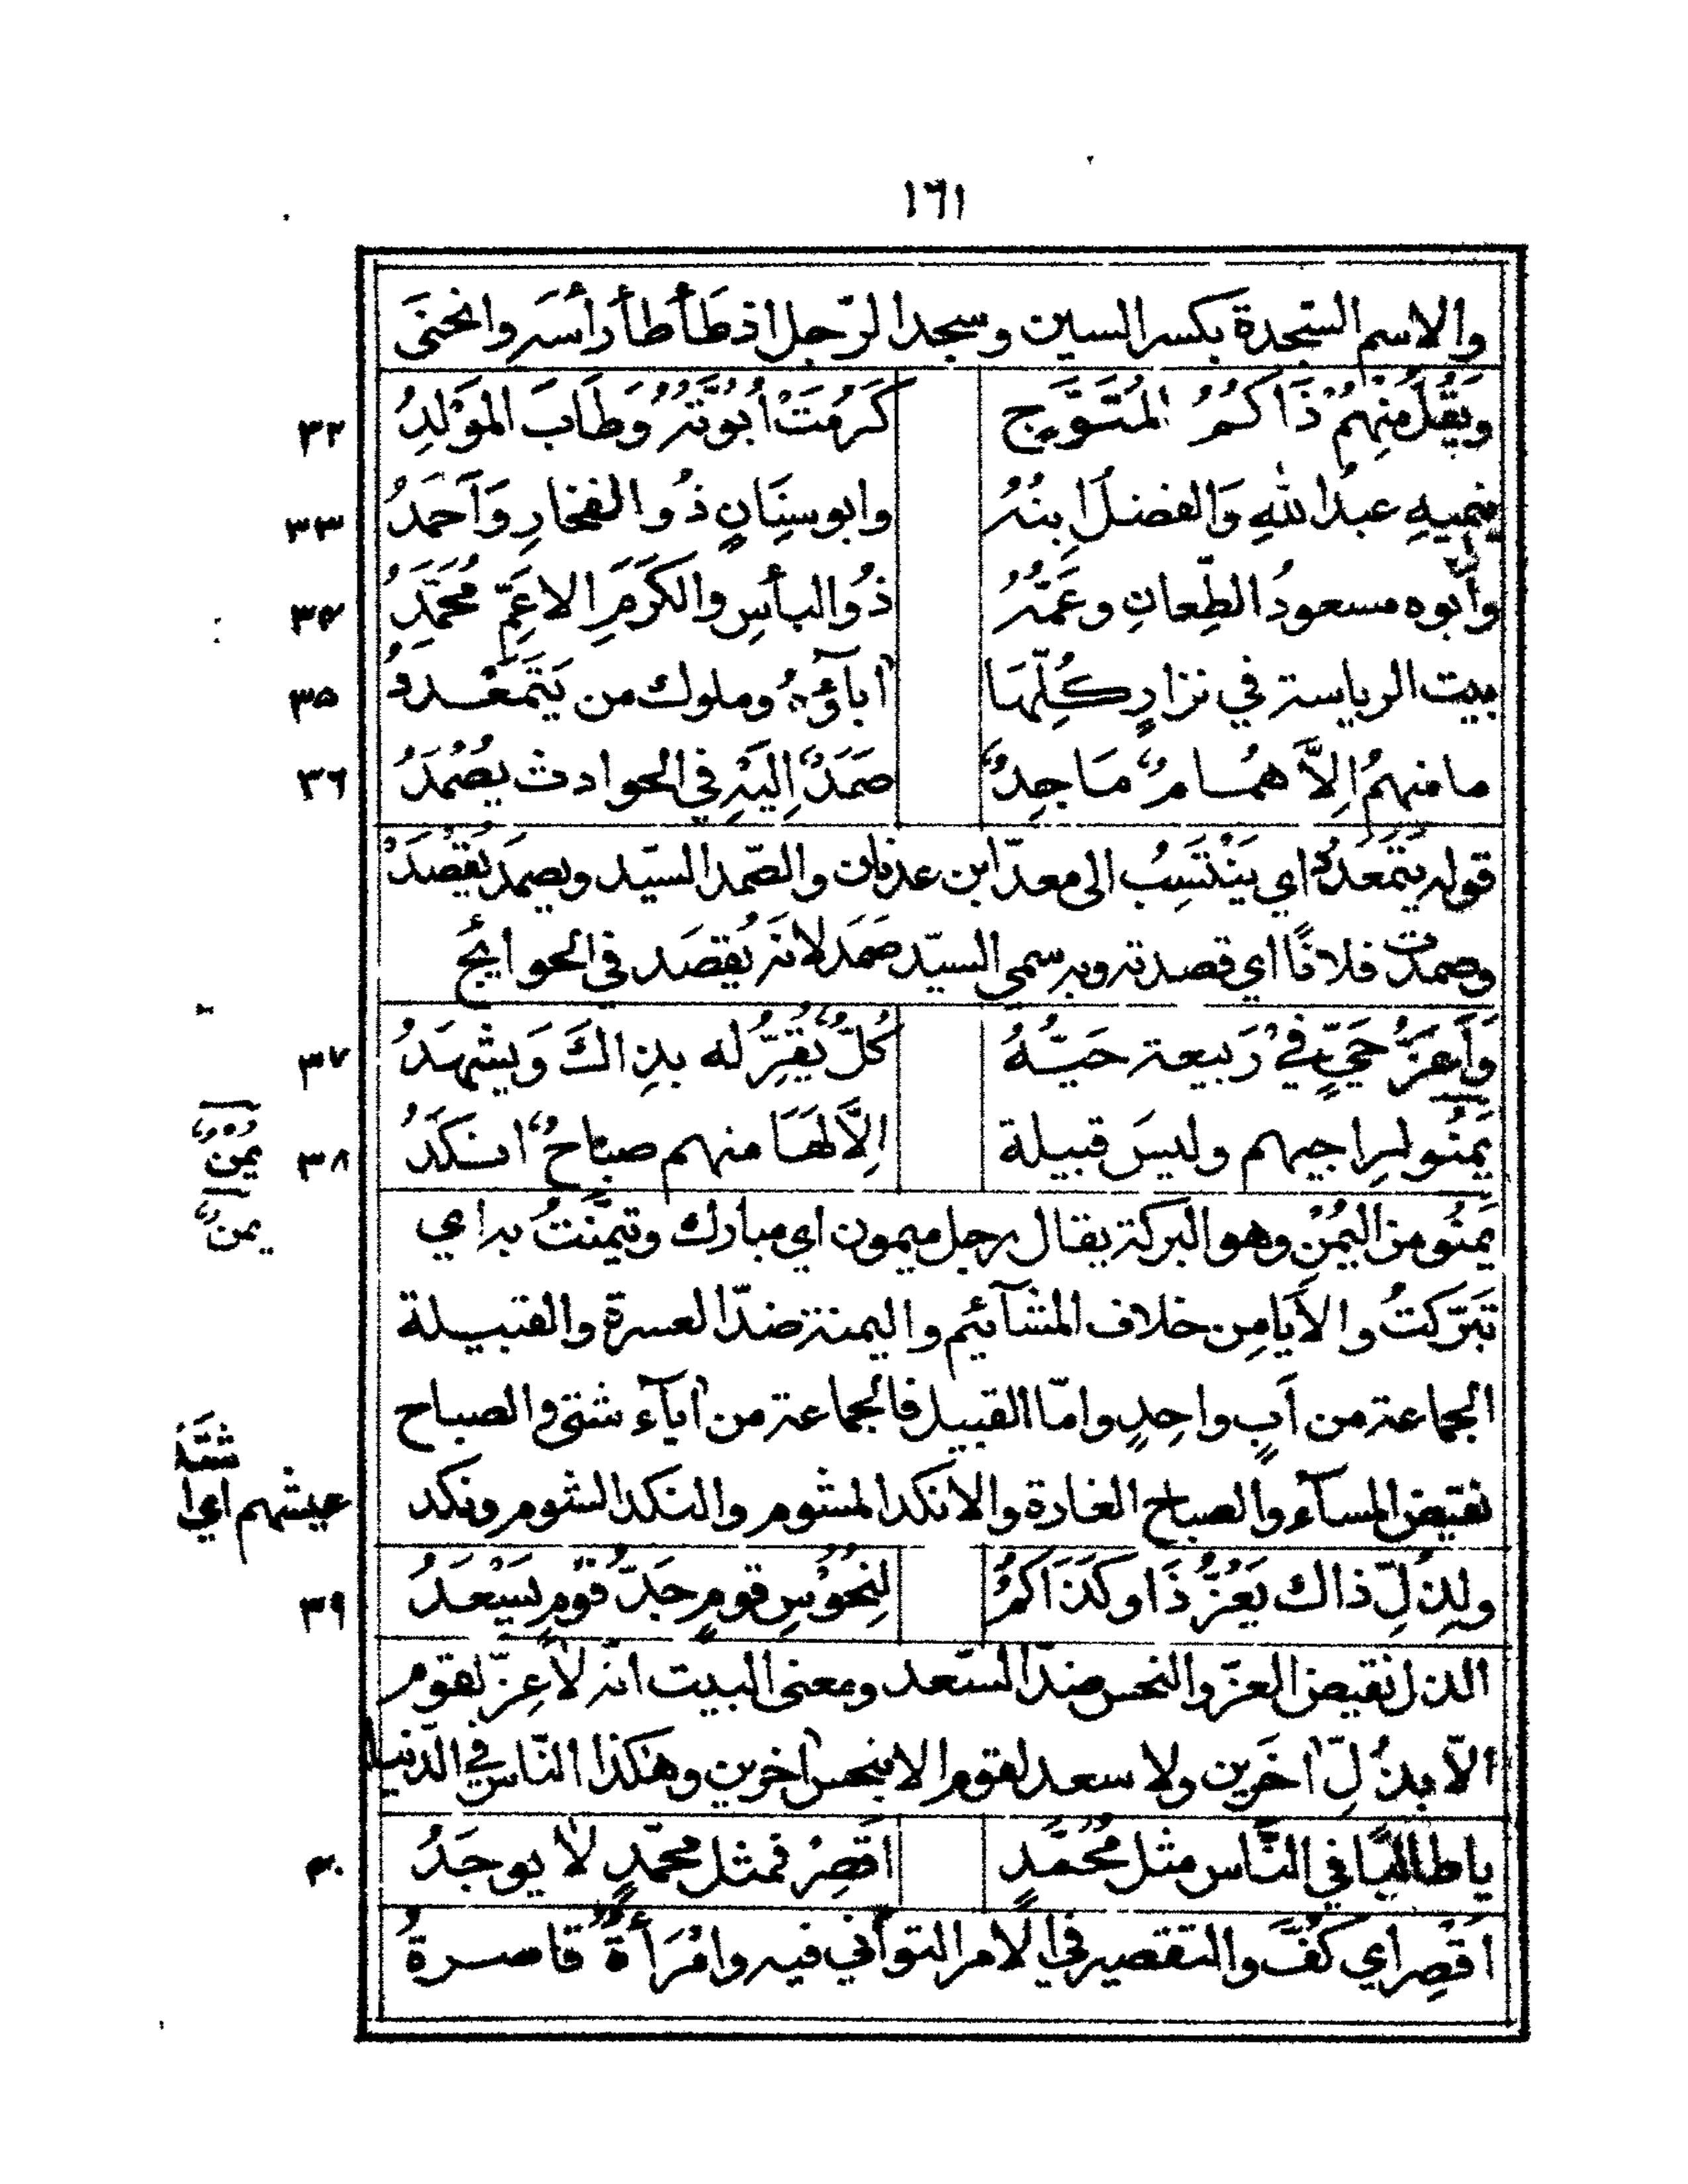 ١٦١
والاسم السّجدة بكسر السين وسجد الرّجل اذ طَأطأ رأسه وانحنَى
وَيَقُلْ مِنْهُمْ ذَا كُمُ المُتَوَّج كَرُمَتْ أُبُوَّتُهُ وَطَابَ المَوْلِدُ ٣٢
ينميهِ عبدُ اللهِ وَالفضلُ ابنُهُ وابو سِنَانٍ ذُو الفخارِ وَآَحمَدُ ٣٣
وأَبوه مسعودُ الطِّعانِ وعَمُّهُ ذُو البأسِ والكَرَمِ الاعَمِّ محمَّدُ ٣٤
بيت الرياسة في نزارٍ كُلِّهَا اٰباَؤُهُ وملوك من يَتَمَعْددُ ٣٥
ما منهمُ اِلاَّ همُامٌ مَاجِدٌ صَمَدٌ اِلَيْهِ في الحوادث يُصْمَدُ ٣٦
قوله يَتَمَعْدَدُ اي يَنْتَسِبُ الى معدّ ابن عدنان والصّمد السيّد ويصمَد يُقْصَدْ
وصمدت فلانًا اي قصدته وبه سمي السيّد صَمَد لانهَ يُقصَد في الحوائج
وَآَعَزُّ حَيٍّ فيْ رَبيعة حَيُّهُ كُلٌّ يُقِرُّ له بذِاكَ وَيشهَدُ ٣٧
يَمِنُو لراجيهم وليسَ قبيلة اِلاَّ لهَاَ منهم صباحٌ انكَدُ ٣٨
يُمْنٌ
يَمنُو من اليُمْنِ وهو البركة يقال رجل ميمون اي مبارك وتيمَّنتُ به اي
يمنٌ
تَبَرّكتُ والاَيامِن خلاف المشَآئيم واليمنة ضدّ العسرة والقبيلة
الجماعة من اَبٍ واحِدٍ وامّا القبيل فالجماعة من اٰباَء شتى و الصباح
نقيض المسآء والصباح الغارة والانكد المشوم والنكد الشوم ونكد
عيشهم اي ا
شتَدَّ
ولِذُلِّ ذاك يَعُزُّ ذَا وكَذَاكمُ لِنحُوْسِ قومٍ جَدُّ قوْمٍ يَسْعَدُ ٣٩
الذل نقيض العزّ والنحس ضدّ السّعد ومعنى البيت انّه لاٰ عِزّ لقوم
الّا بذُلِّ اٰخَرين ولا سعد لقوم الا بنحس اٰخرين وهٰكذا النّاس في الدّنيا
يا طالبًا في النَّاس مثل مُحمَّدٍ اَقصِرْ فمثل محمّدٍ لاٰ يوجَدُ ٤٠
اَقْصِر اي كُفَّ والتقصير في الامر التواني فيه وامْرَأةٌ قاصرةُ